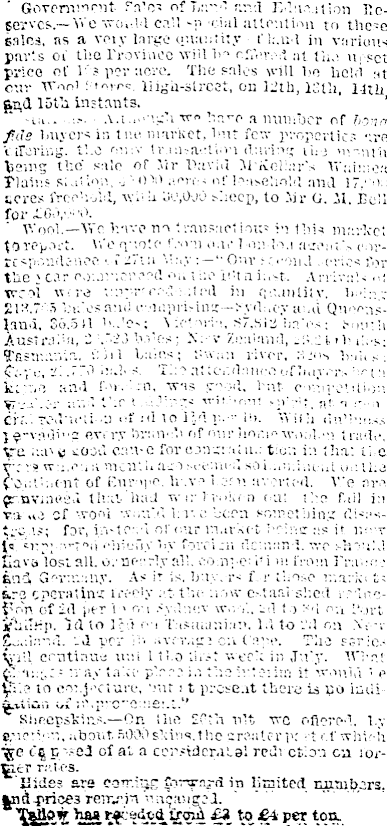 Government Sales of Land and Education Re-
serves.—We would call special attention to these
sales, as a very large quantity of land in various
parts of the Province will be offered at the upset
price of per acre. The sales will be held at
our Wool Stores, High-street, on 12th, 13th, 14th,
and 15th instants.
Although we have a number of bona
fide buyers in the market, but few properties are
offering, the only transaction during the month
being the sale of Mr David M'Kellar's Waimea
Plains station, acres of leasehold and
acres freehold, with 50,000 sheep, to Mr G. M. Bell
for
Wool.—We have no transactions in this market
to report. We quote from our London agent's cor-
respondence of 27th May:—"Our second series for
the year commenced on the inst. Arrivals of
wool were unprecedented in quantity, being
bales and comprising—Sydney and Queens-
land, bales; Victoria, 87,812 bales; South
Australia, bales; New Zealand, bales;
Tasmania, bales; Swan river, bales;
Cape, bales. The attendance of buyers both
home and foreign, was good, but competition
weaker and the biddings without spirit, at a gen-
eral reduction of 1d to 1½d per lb. With dullness
pervading every branch of our home woolen trade,
we have good cause for congratulation in that the
wars which a month ago seemed so imminent on the
Continent of Europe, have been averted. We are
convinced that had war broken out the fall in
value of wool would have been something disas-
trous; for, instead of our market being as it now
is supported chiefly by foreign demand, we should
have lost all, or nearly all, competition from France
and Germany. As it is, buyers for these markets
are operating freely at the now established reduc-
tion of 2d per lb on Sydney wool, 2d to on Port
Philip, 1d to 1½d on Tasmanian, 1d to 2d on New
Zealand, per lb average on Cape. The series
will continue until the first week in July. What
changes may take place in the interim it would be
idle to conjecture, but at present there is no indi-
cation of improvement."
Sheepskins.—On the ult we offered, by
auction, about 5000 skins, the greater part of which
we disposed of at a considerable reduction on for-
mer rates.
Hides are coming forward in limited numbers,
and prices remain unchanged.
Tallow has receded from £2 to £4 per ton.